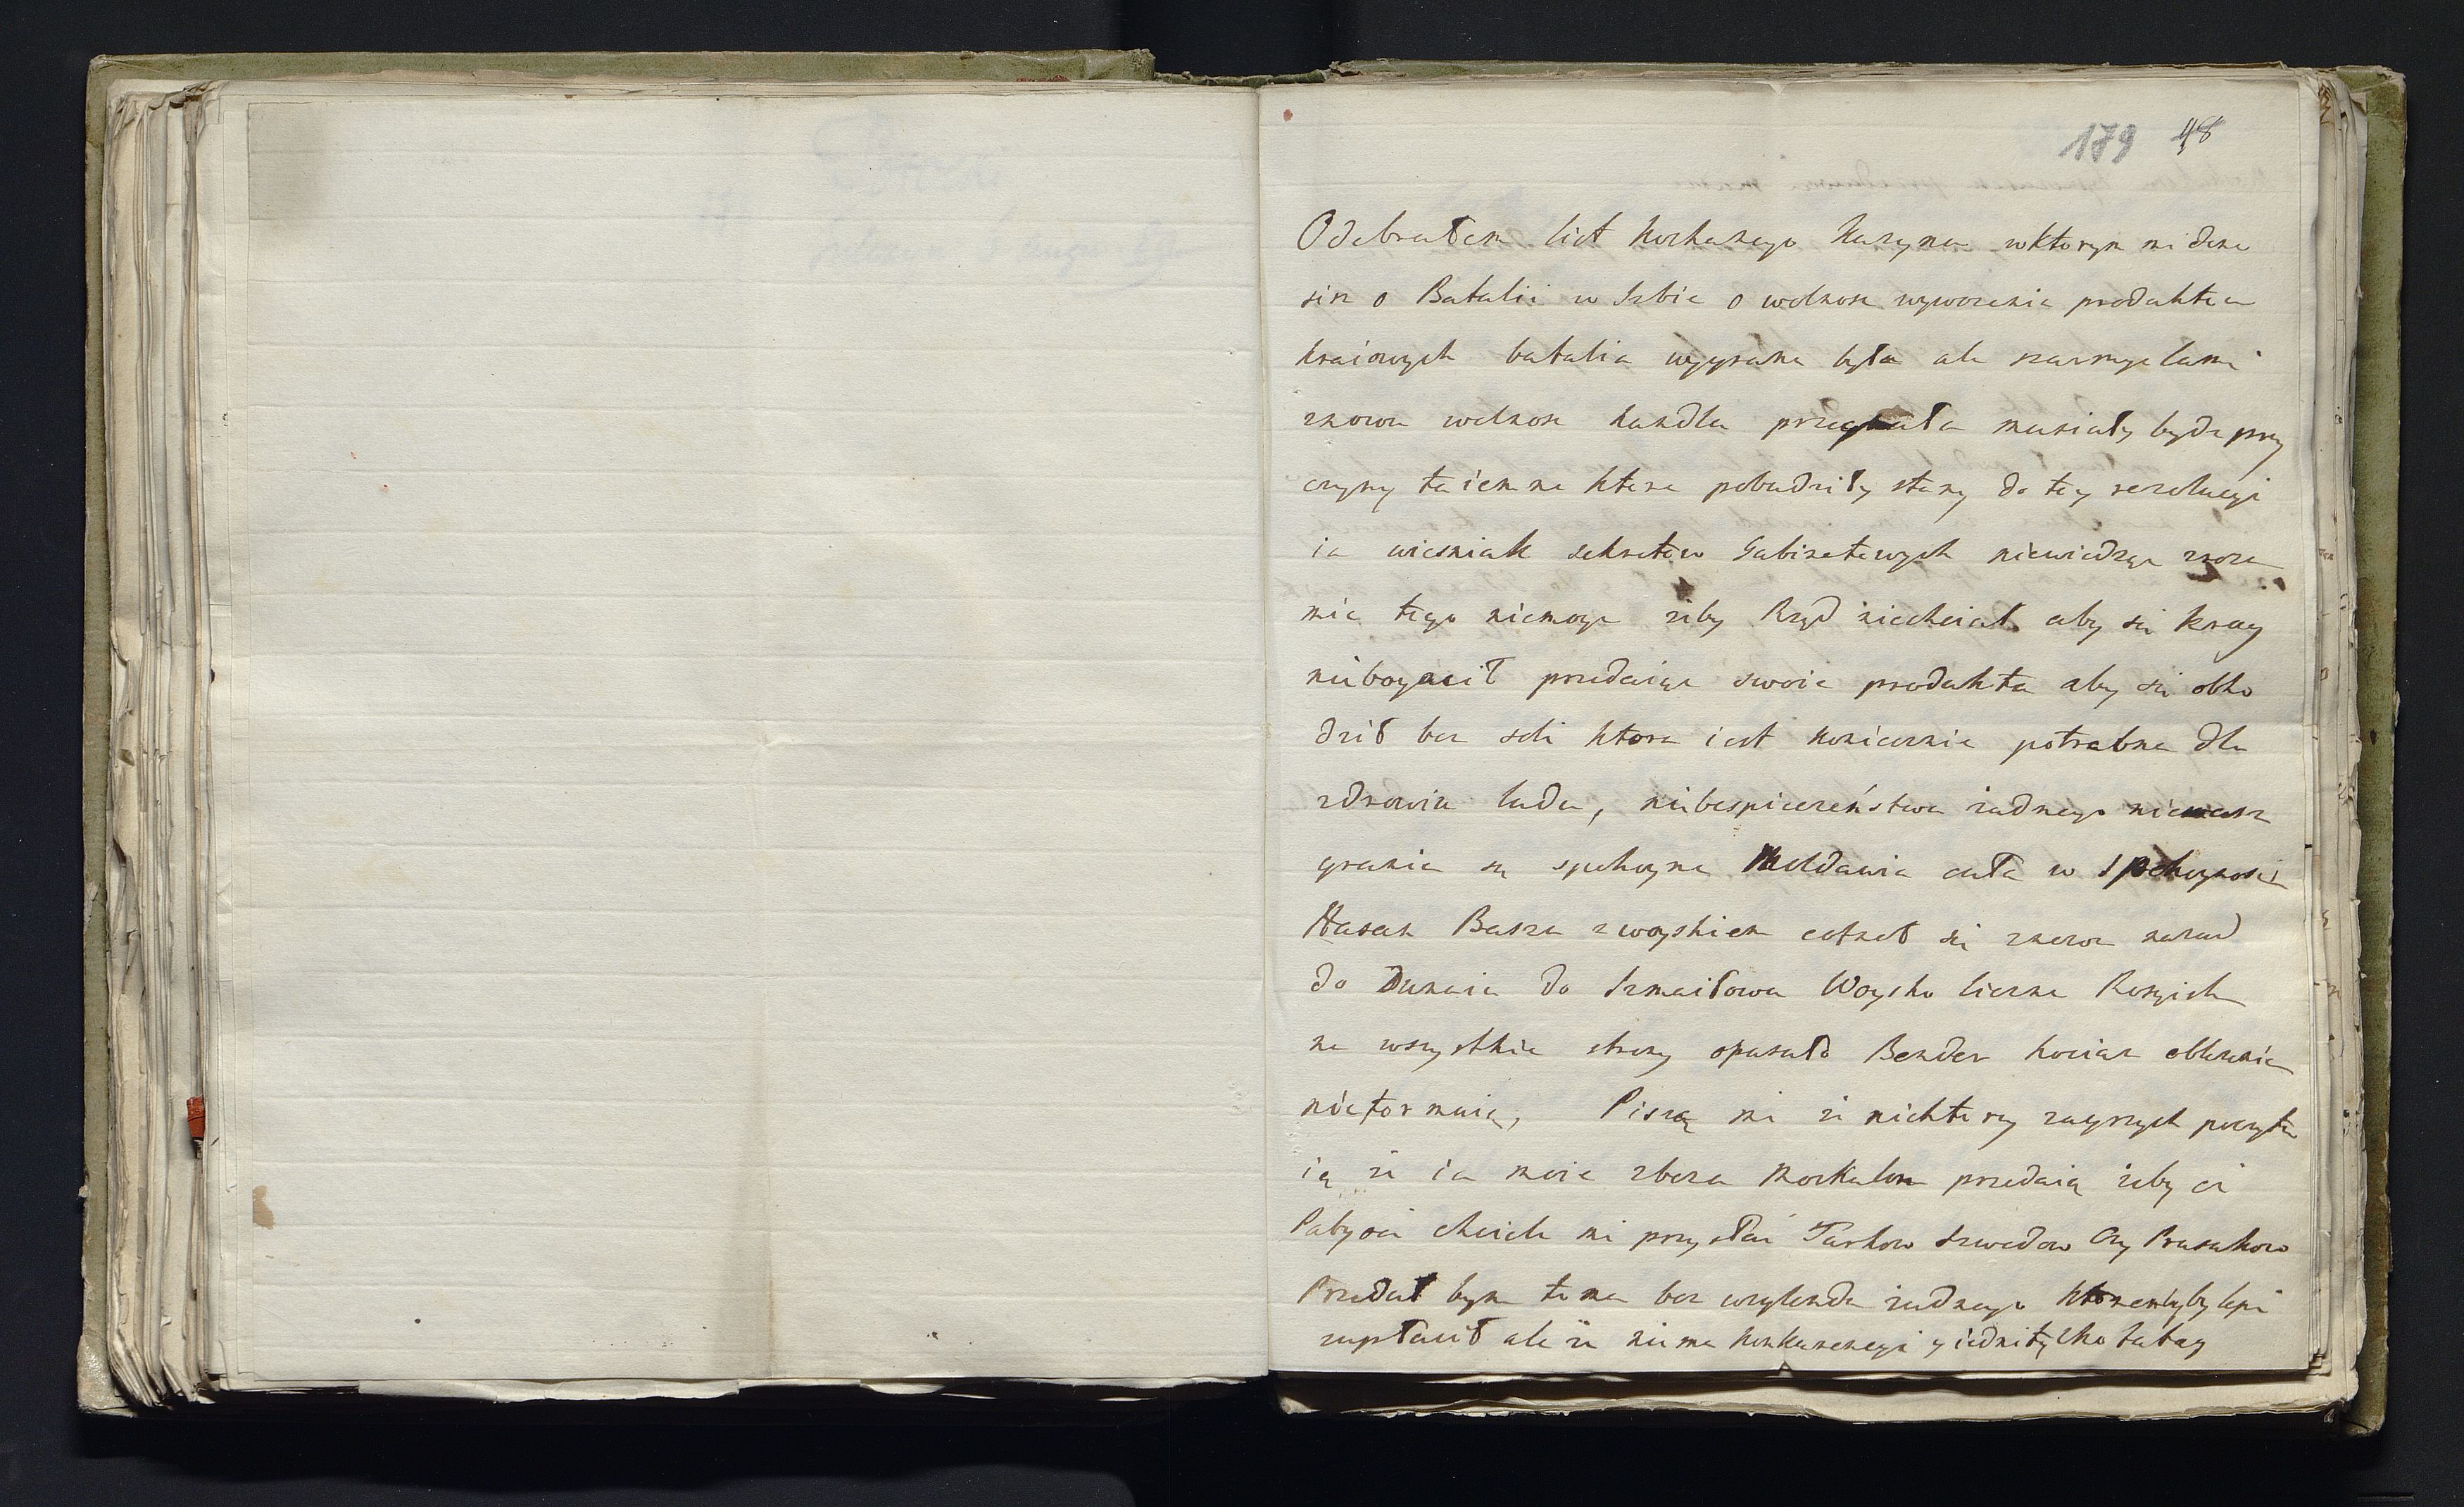 179 48
Odebrałem list Kochanego Kuzyna wktorym mi dono
sisz o Batalii w Izbie o wolnosc wywozenia produktow
kraiowych batalia wygrana była ale
znowu wolnosc handlu przegrała musiały bydz przy
czyny taiemne ktore pobudziły stany do tey rezolucyi
ia wiesniak sekretow Gabinetowych niewiedząc zrozu
mie tego niemoge zeby Rząd niechciał aby się kray
niebogacił przedaiąc swoie produkta aby się obho
dził bez soli ktora iest koniecznie potrzebna dla
zdrowia ludu, niebespiczeństwa zadnego niemasz
granice są spokoyne Mołdawia cała w spokoynosci
Hasan Basza zwoyskiem cofnoł się znowu nazad
do Dunaiu do Izmaiłowa Woysko liczne Rosyiskie
na wszystkie strony opasało Bender hociasz oblęzenia
nieformuią, Piszą mi ze niektorzy zwyzszych poczytu
ią ze ia moie zboza Moskalom przedaię zeby ci
 chcieli mi przysłać Turkow Szwedow Czy Prusakow
Przedał bym temu bez względu zadnego ktorenby by lepi
zapłacił ale ze niema konkurencyi y iedni tylko